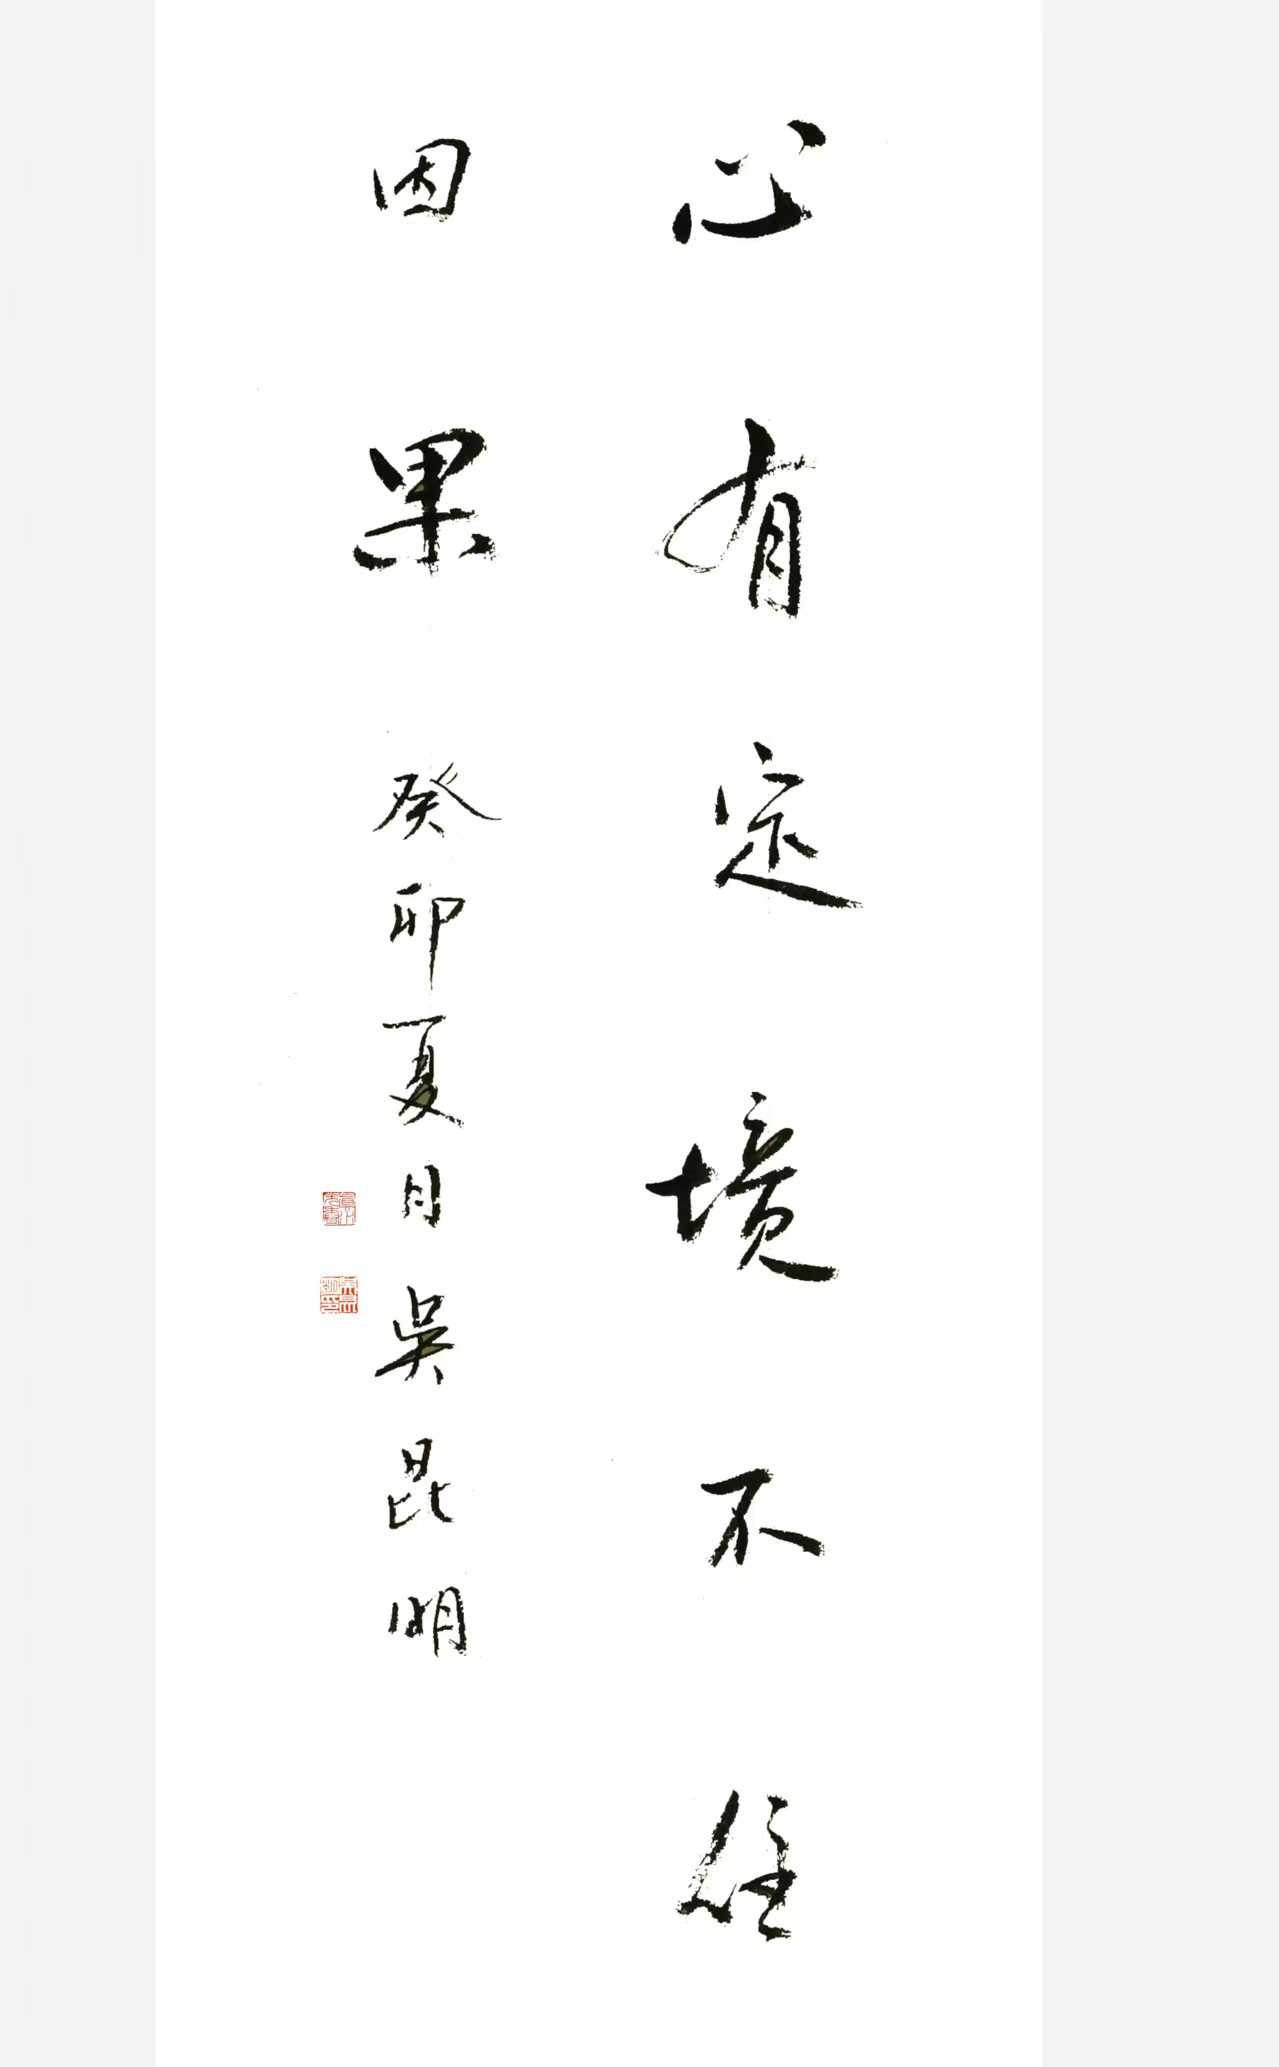 心有定境不住
因果 癸卯夏月吳昆明